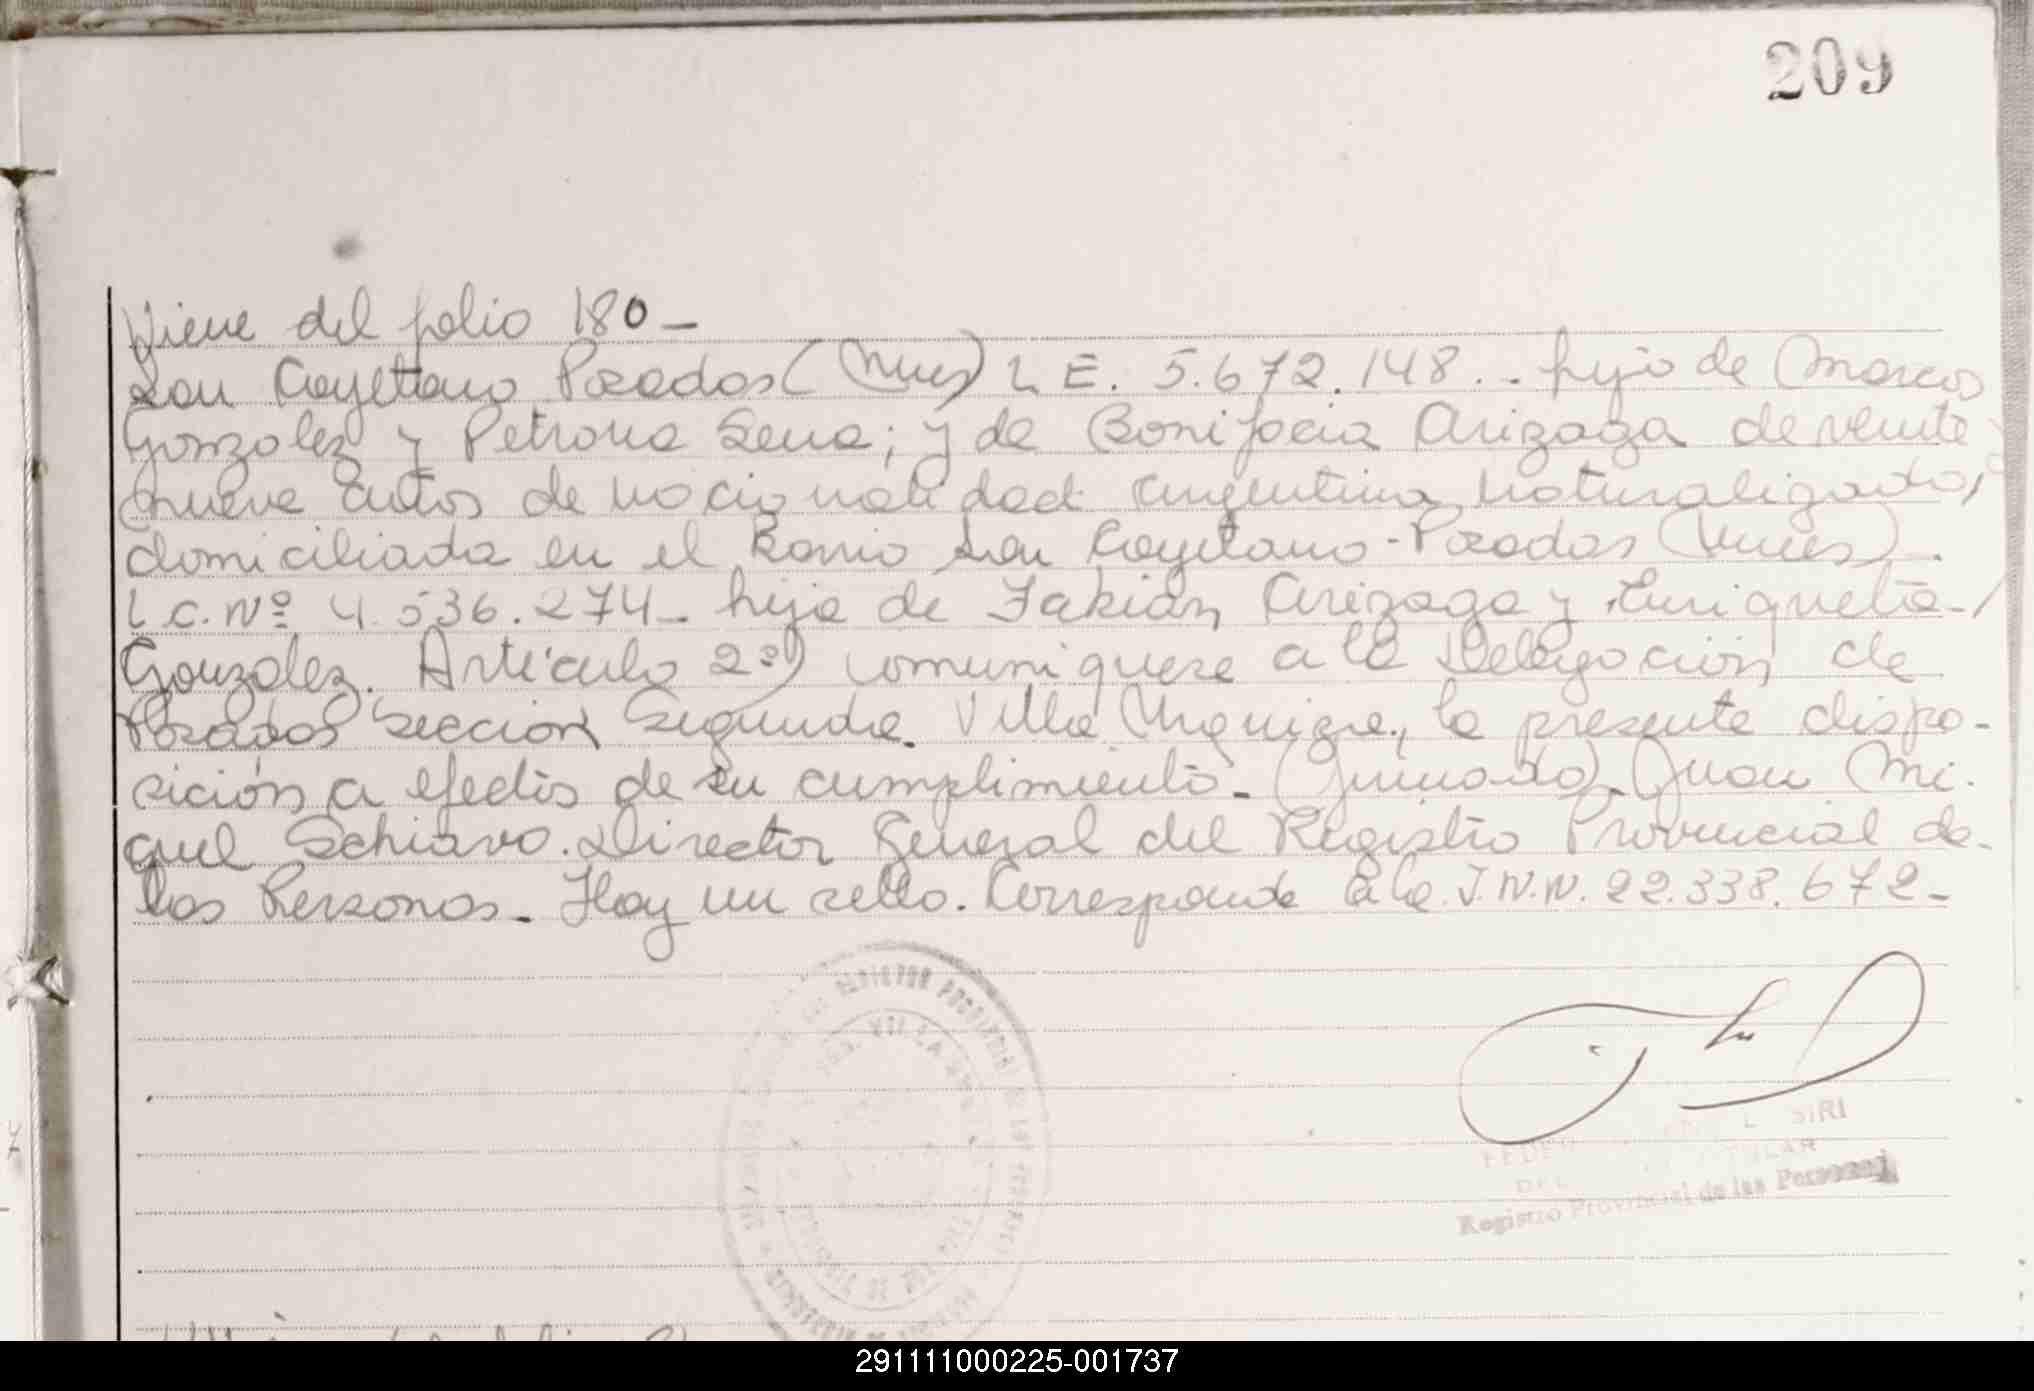 209
Viene del folio 180 -
San Cayetano Posadas (Mnes) L E. 5.672.148. - hijo de Marcos
Gonzalez y Petrona Sena; y de Bonifacia Arizaga de veinte
nueve años de nacionalidad argentina naturalizada,
domiciliada en el Barrio San Cayetano - Posadas (Mnes) -
L.C. Nº 4.536.274 - hija de Fabián Arizaga y Enriqueta -
Gonzalez. Artículo 2º) comuniquese a la Delegación de
Posadas Sección Segunda. Villa Urquiza, la presente dispo-
sición a efectos de su cumplimiento - (Firmado) Juan Mi-
guel Schiavo. Director General del Registro Provincial de -
las Personas - Hay un sello. Corresponde a la I.N.N. 22.338.672 -
SIRI
TITULAR
DEL
Registro Provincial de las Personas
291111000225-001737